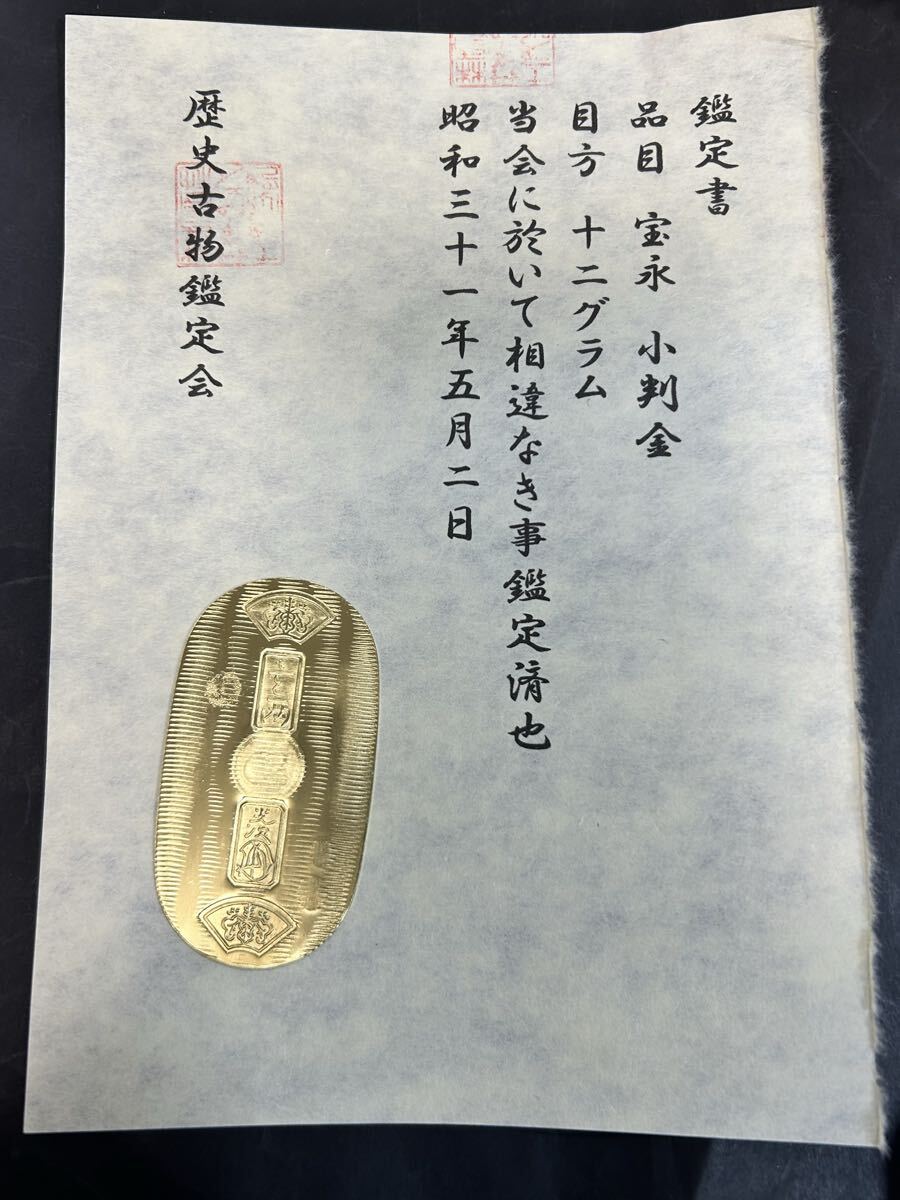 鑑定書
品目 宝永 小判金
目方 十二グラム
当会に於いて相違なき事鑑定済也
昭和三十一年五月二日
歴史古物鑑定会